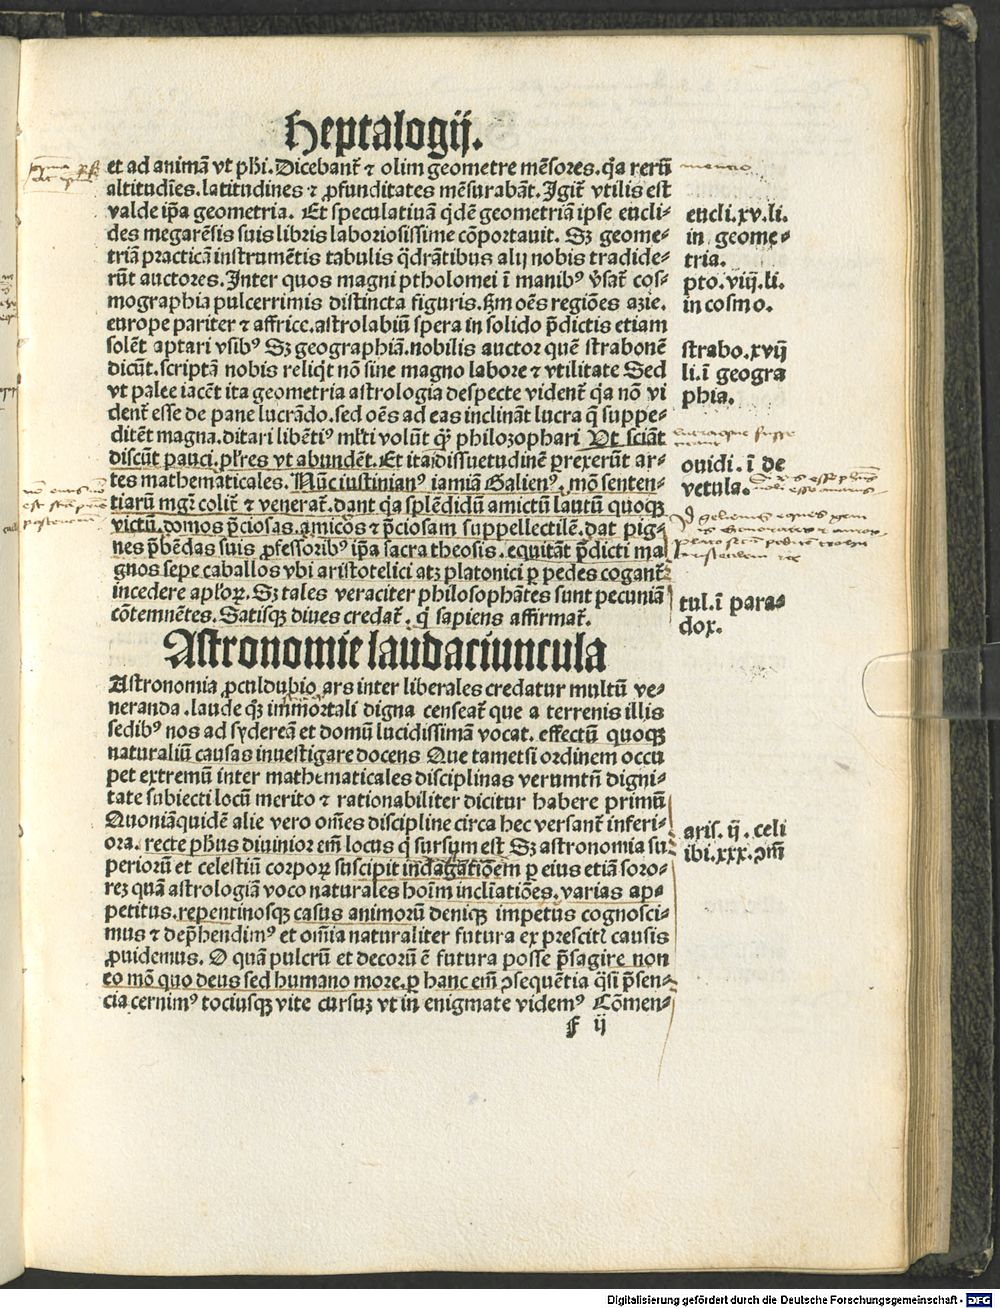 Heptalogij.
et ad animā vt phi. Dicebant̄ ⁊ olim geometre mēsores. q̄a rerū
altitudīes. latitudines ⁊ ꝓfunditates mēsurabāt. Igit̄ vtilis est
valde ip̄a geometria. Et speculatiuā q̇dē geometriā ipse eucli⸗
des megarēsis suis libris laboriosissime cōportauit. Sꝫ geome⸗
triā practicā instrumētis tabulis q̇drātibus alij nobis tradide⸗
rūt auctores. Inter quos magni ptholomei ī manibꝰ v̄sat̄ cos⸗
mographia pulcerrimis distincta figuris. Em̄ oēs regiōes azie.
europe pariter ⁊ affrice. astrolabiū spera in solido p̄dictis etiam
solēt aptari vsibꝰ Sꝫ geographiā. nobilis auctor quē strabonē
dicūt. scriptā nobis reliq̇t nō sine magno labore ⁊ vtilitate Sed
vt palee iacēt ita geometria astrologia despecte vident̄ q̄a nō vi
dent̄ esse de pane lucrādo. sed oēs ad eas inclināt lucra q̄ suppe⸗
ditēt magna. ditari libētiꝰ ml̄ti volūt q̄ꝫ philozophari Ut sciāt
discūt pauci. pl̄res vt abundēt. Et ita dissuetudinē ꝑrexerūt ar⸗
tes mathematicales. Nūc iustinianꝰ iamiā Galienꝰ. mō senten⸗
tiarū mgr̄ colit̄ ⁊ venerat̄. dant q̄a splēdidū amictū lautū quoqꝫ
victū. domos p̄ciosas. amicos ⁊ p̄ciosam suppellectilē. dat pig⸗
nes p̄bēdas suis ꝓfessoribꝰ ip̄a sacra theosis. equitāt p̄dicti ma
gnos sepe caballos vbi aristotelici atꝫ platonici ꝑ pedes cogant̄
incedere apl̄oꝝ. Sꝫ tales veraciter philosophātes sunt pecuniā
cōtemnētes. Satisqꝫ diues credat̄. q̇ sapiens affirmat̄.
eucli. xv. li.
in geome⸗
tria.
pto. viij. li.
in cosmo.
strabo. xvij
li. ī geogra
phia.
ouidi. ī de
vetula.
tul. ī para⸗
dox.
Astronomie laudaciuncula
Astronomia ꝓculdubio ars inter liberales credatur multū ve⸗
neranda. laude q̄ꝫ immortali digna censeat̄ que a terrenis illis
sedibꝰ nos ad sydereā et domū lucidissimā vocat. effectū quoqꝫ
naturaliū causas inuestigare docens Que tametsi ordinem occu
pet extremū inter mathematicales disciplinas verumtn̄ digni⸗
tate subiecti locū merito ⁊ rationabiliter dicitur habere primū
Quoniāquidē alie vero om̄es discipline circa hec versant̄ inferi⸗
ora. recte ph̄us diuinior em̄ locus q̇ sursum est Sꝫ astronomia su
periorū et celestiū corpoꝝ suscipit indagatiōem ꝑ eius etiā soro⸗
reꝫ quā astrologiā voco naturales hoīm inclīatiōes. varias ap⸗
petitus. repentinosqꝫ casus animorū deniqꝫ impetus cognosci⸗
mus ⁊ dep̄hendimꝰ et om̄ia naturaliter futura ex prescitꝭ causis
ꝓuidemus. O quā pulcrū et decorū ē futura posse p̄sagire non
eo mō quo deus sed humano more. ꝑ hanc em̄ ꝯsequētia q̇si p̄sen⸗
cia cernimꝰ tociusqꝫ vite cursuꝫ vt in enigmate videmꝰ Cōmen⸗
aris. ij. celi
ibi. xxx. ꝯm̄
f ij
Digitalisierung gefördert durch die Deutsche Forschungsgemeinschaft - DFG